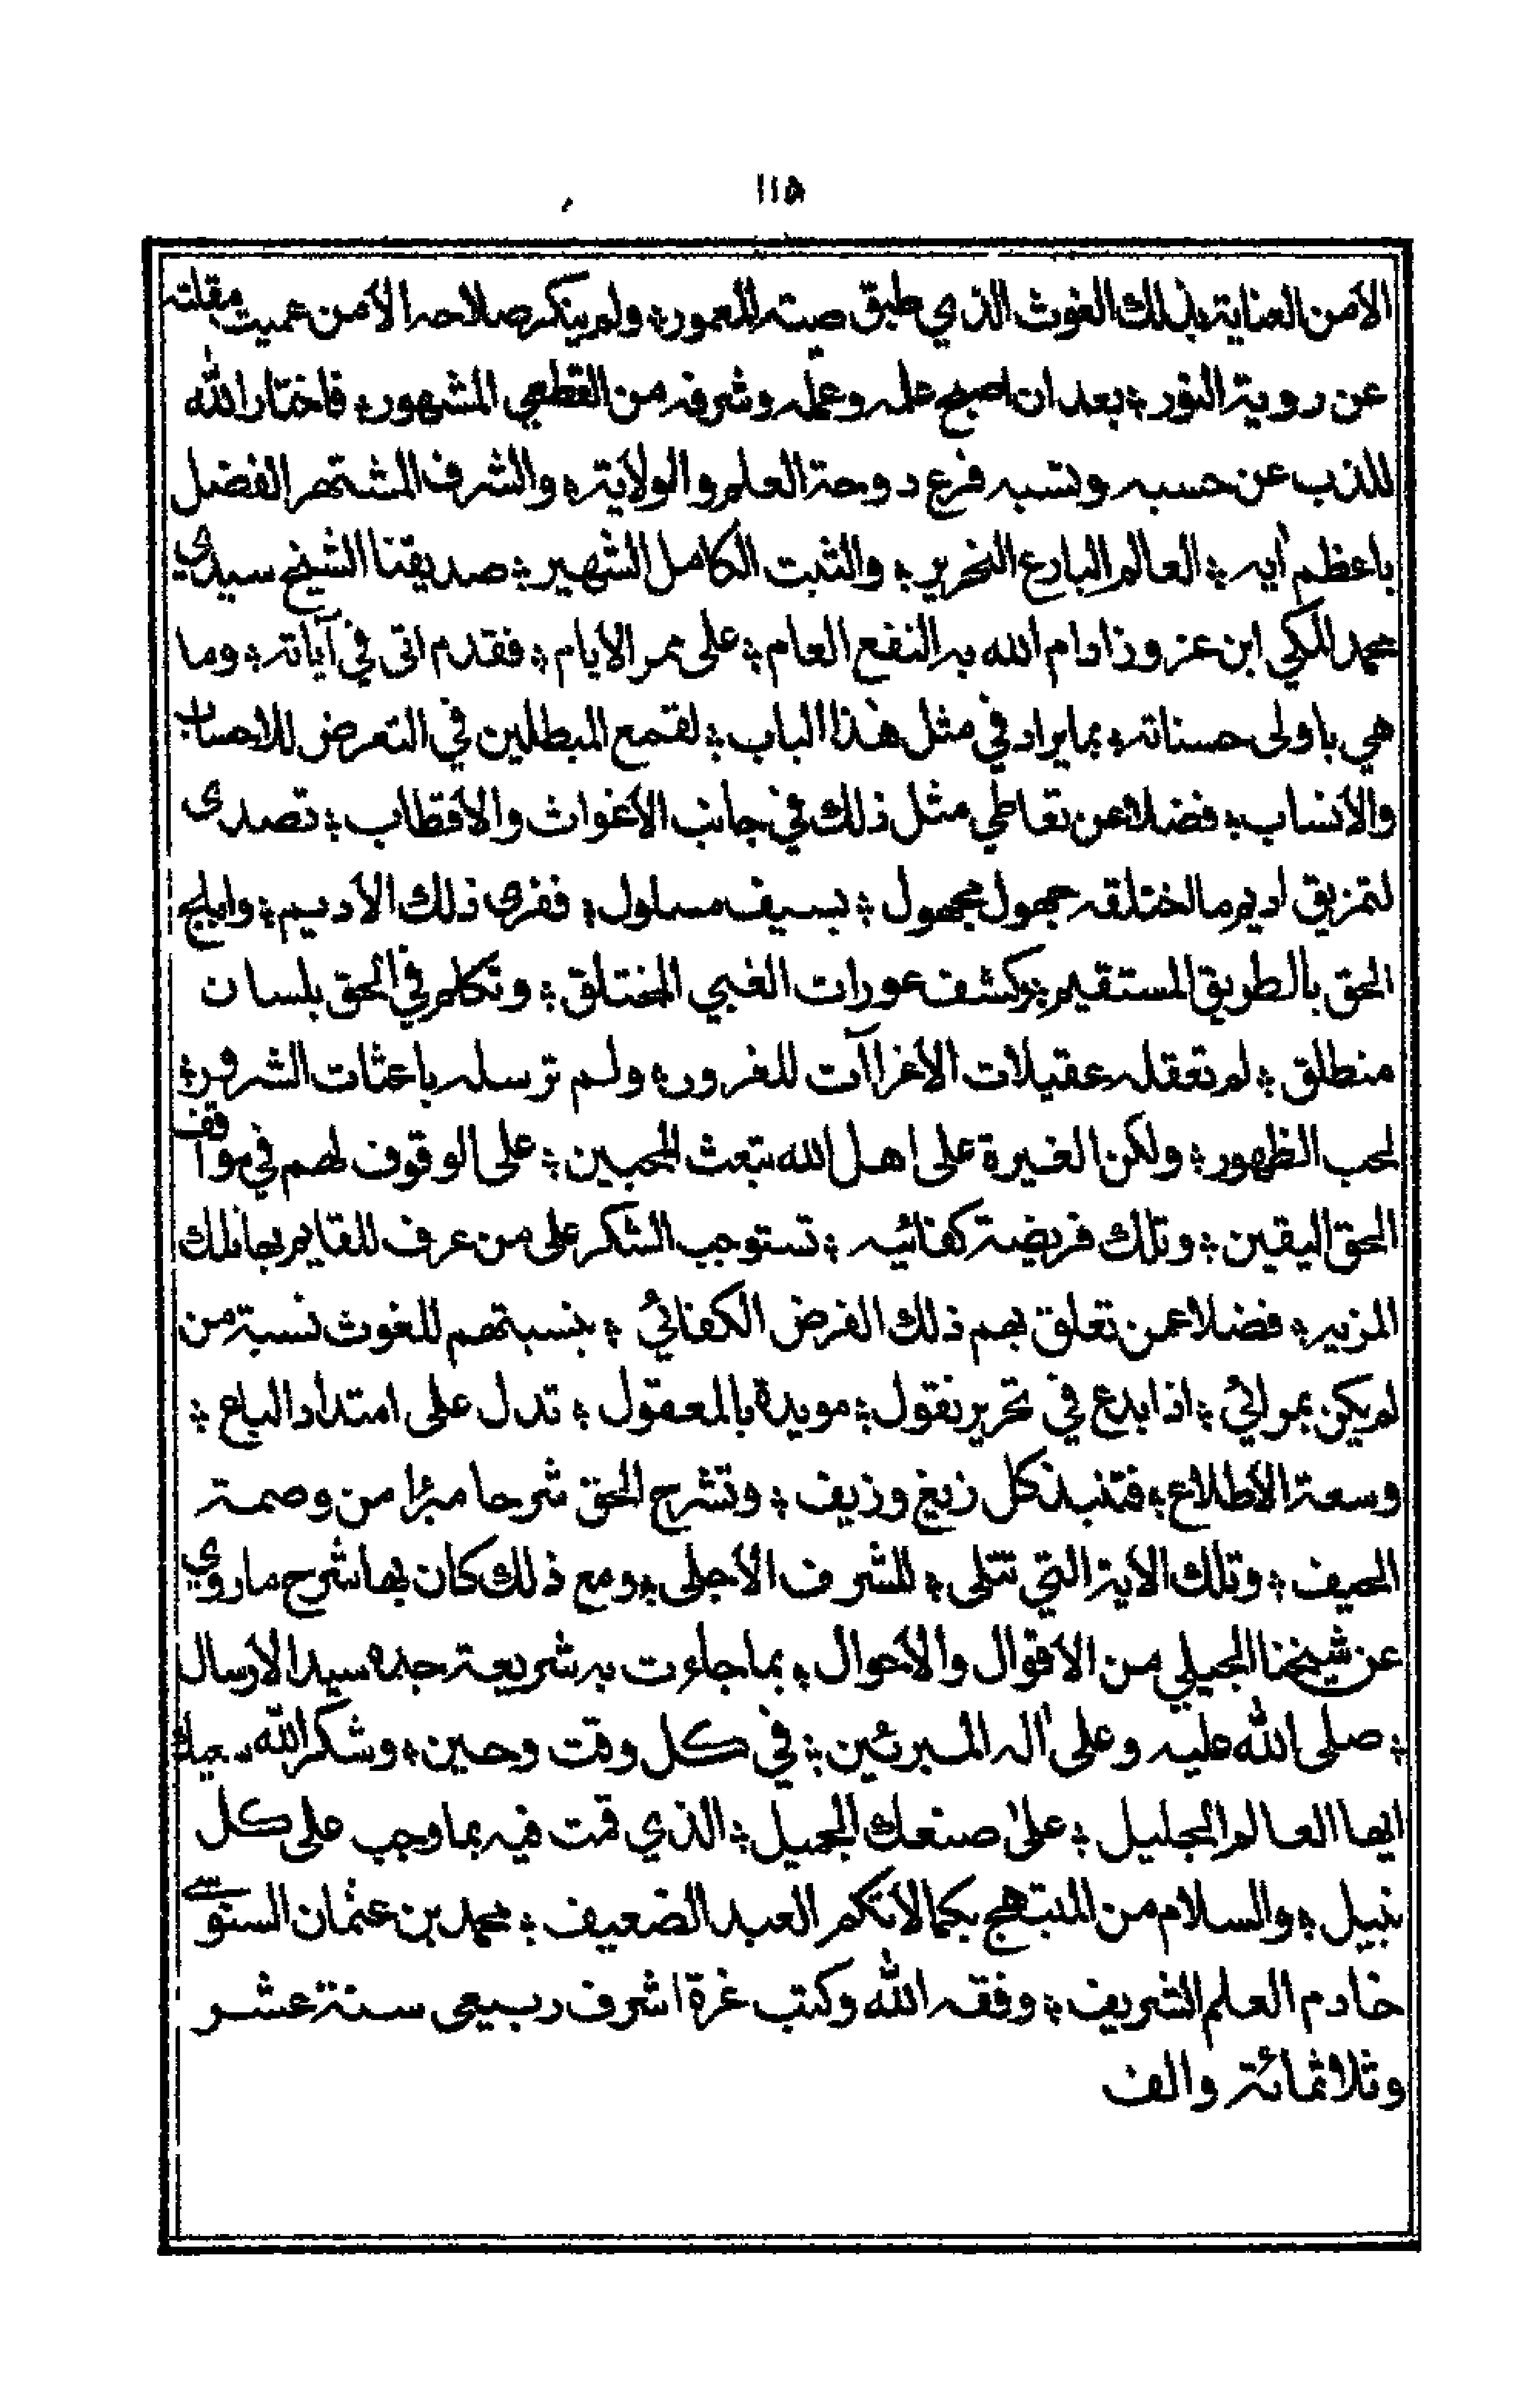 ١١٥
الأمن العناية بذلك الغوث الذي طبق صيته المعمور؛ ولم ينكر صلاحه الا من عميت مقلته
عن روية النور؛ بعد ان اصبح علمه وعمله وشرفه من القطعي المشهور؛ فاختار الله
للذب عن حسبه ونسبه فرع دوحة العلم والولاية؛ والشرف المشتهر الفضل
باعظم آيه؛ العالم البارع النحرير؛ والثبت الكامل الشهير؛ صديقنا الشيخ سيدي
محمد المكي ابن عزوز ادام الله به النفع العام؛ على ممر الايام؛ فقدم اتى في آياته؛ وما
هي باولى حسناته؛ بما يراد في مثل هذا الباب؛ لقمع المبطلين في التعرض للاحساب
والأنساب؛ فضلا عن تعاطي مثل ذلك في جانب الأغواث والأقطاب؛ تصدى
لتمزيق اديم ما اختلقه جهول مجهول؛ بسيف مسلول؛ ففرى ذلك الاديم؛ وابلج
الحق بالطريق المستقيم؛ وكشف عورات الغبي المختلق؛ وتكلم في الحق بلسان
منطلق؛ لم تعقله عقيلات الأغراآت للغرور؛ ولم ترسله باعثات الشرف؛
لحب الظهور؛ ولكن الغيرة على اهل الله تبعث المحبين؛ على الوقوف لهم في مواقف
الحق اليقين؛ وتلك فريضة كفائيه؛ تستوجب الشكر على من عرف للقايم بها تلك
المزيه؛ فضلا عمن تعلق بهم ذلك الفرض الكفائي؛ بنسبتهم للغوث نسبة من
لم يكن بمرائي؛ اذ ابدع في تحرير نقول؛ مويدة بالمعقول؛ تدل على امتداد الباع؛
وسعة الأطلاع؛ فتنبذ كل زيغ وزيف؛ وتشرح الحق شرحا مبرًا من وصمة
الحيف؛ وتلك الاية التي تتلى؛ للشرف الأجلى؛ ومع ذلك كان بها شرح ما روي
عن شيخنا الجيلي من الأقوال والأحوال؛ بما جاءت به شريعة جده سيد الأرسال
؛ صلى الله عليه وعلى آله المبرئين؛ في كل وقت وحين؛ وشكر الله سعيك
ايها العالم الجليل؛ على صنعك الجميل؛ الذي قمت فيه بما وجب على كل
نبيل؛ والسلام من المبتهج بكمالاتكم العبد الضعيف؛ محمد بن عثمان السنوسي
خادم العلم الشريف؛ وفقه الله وكتب غرة اشرف ربيعي سنة عشر
وثلاثمائة والف